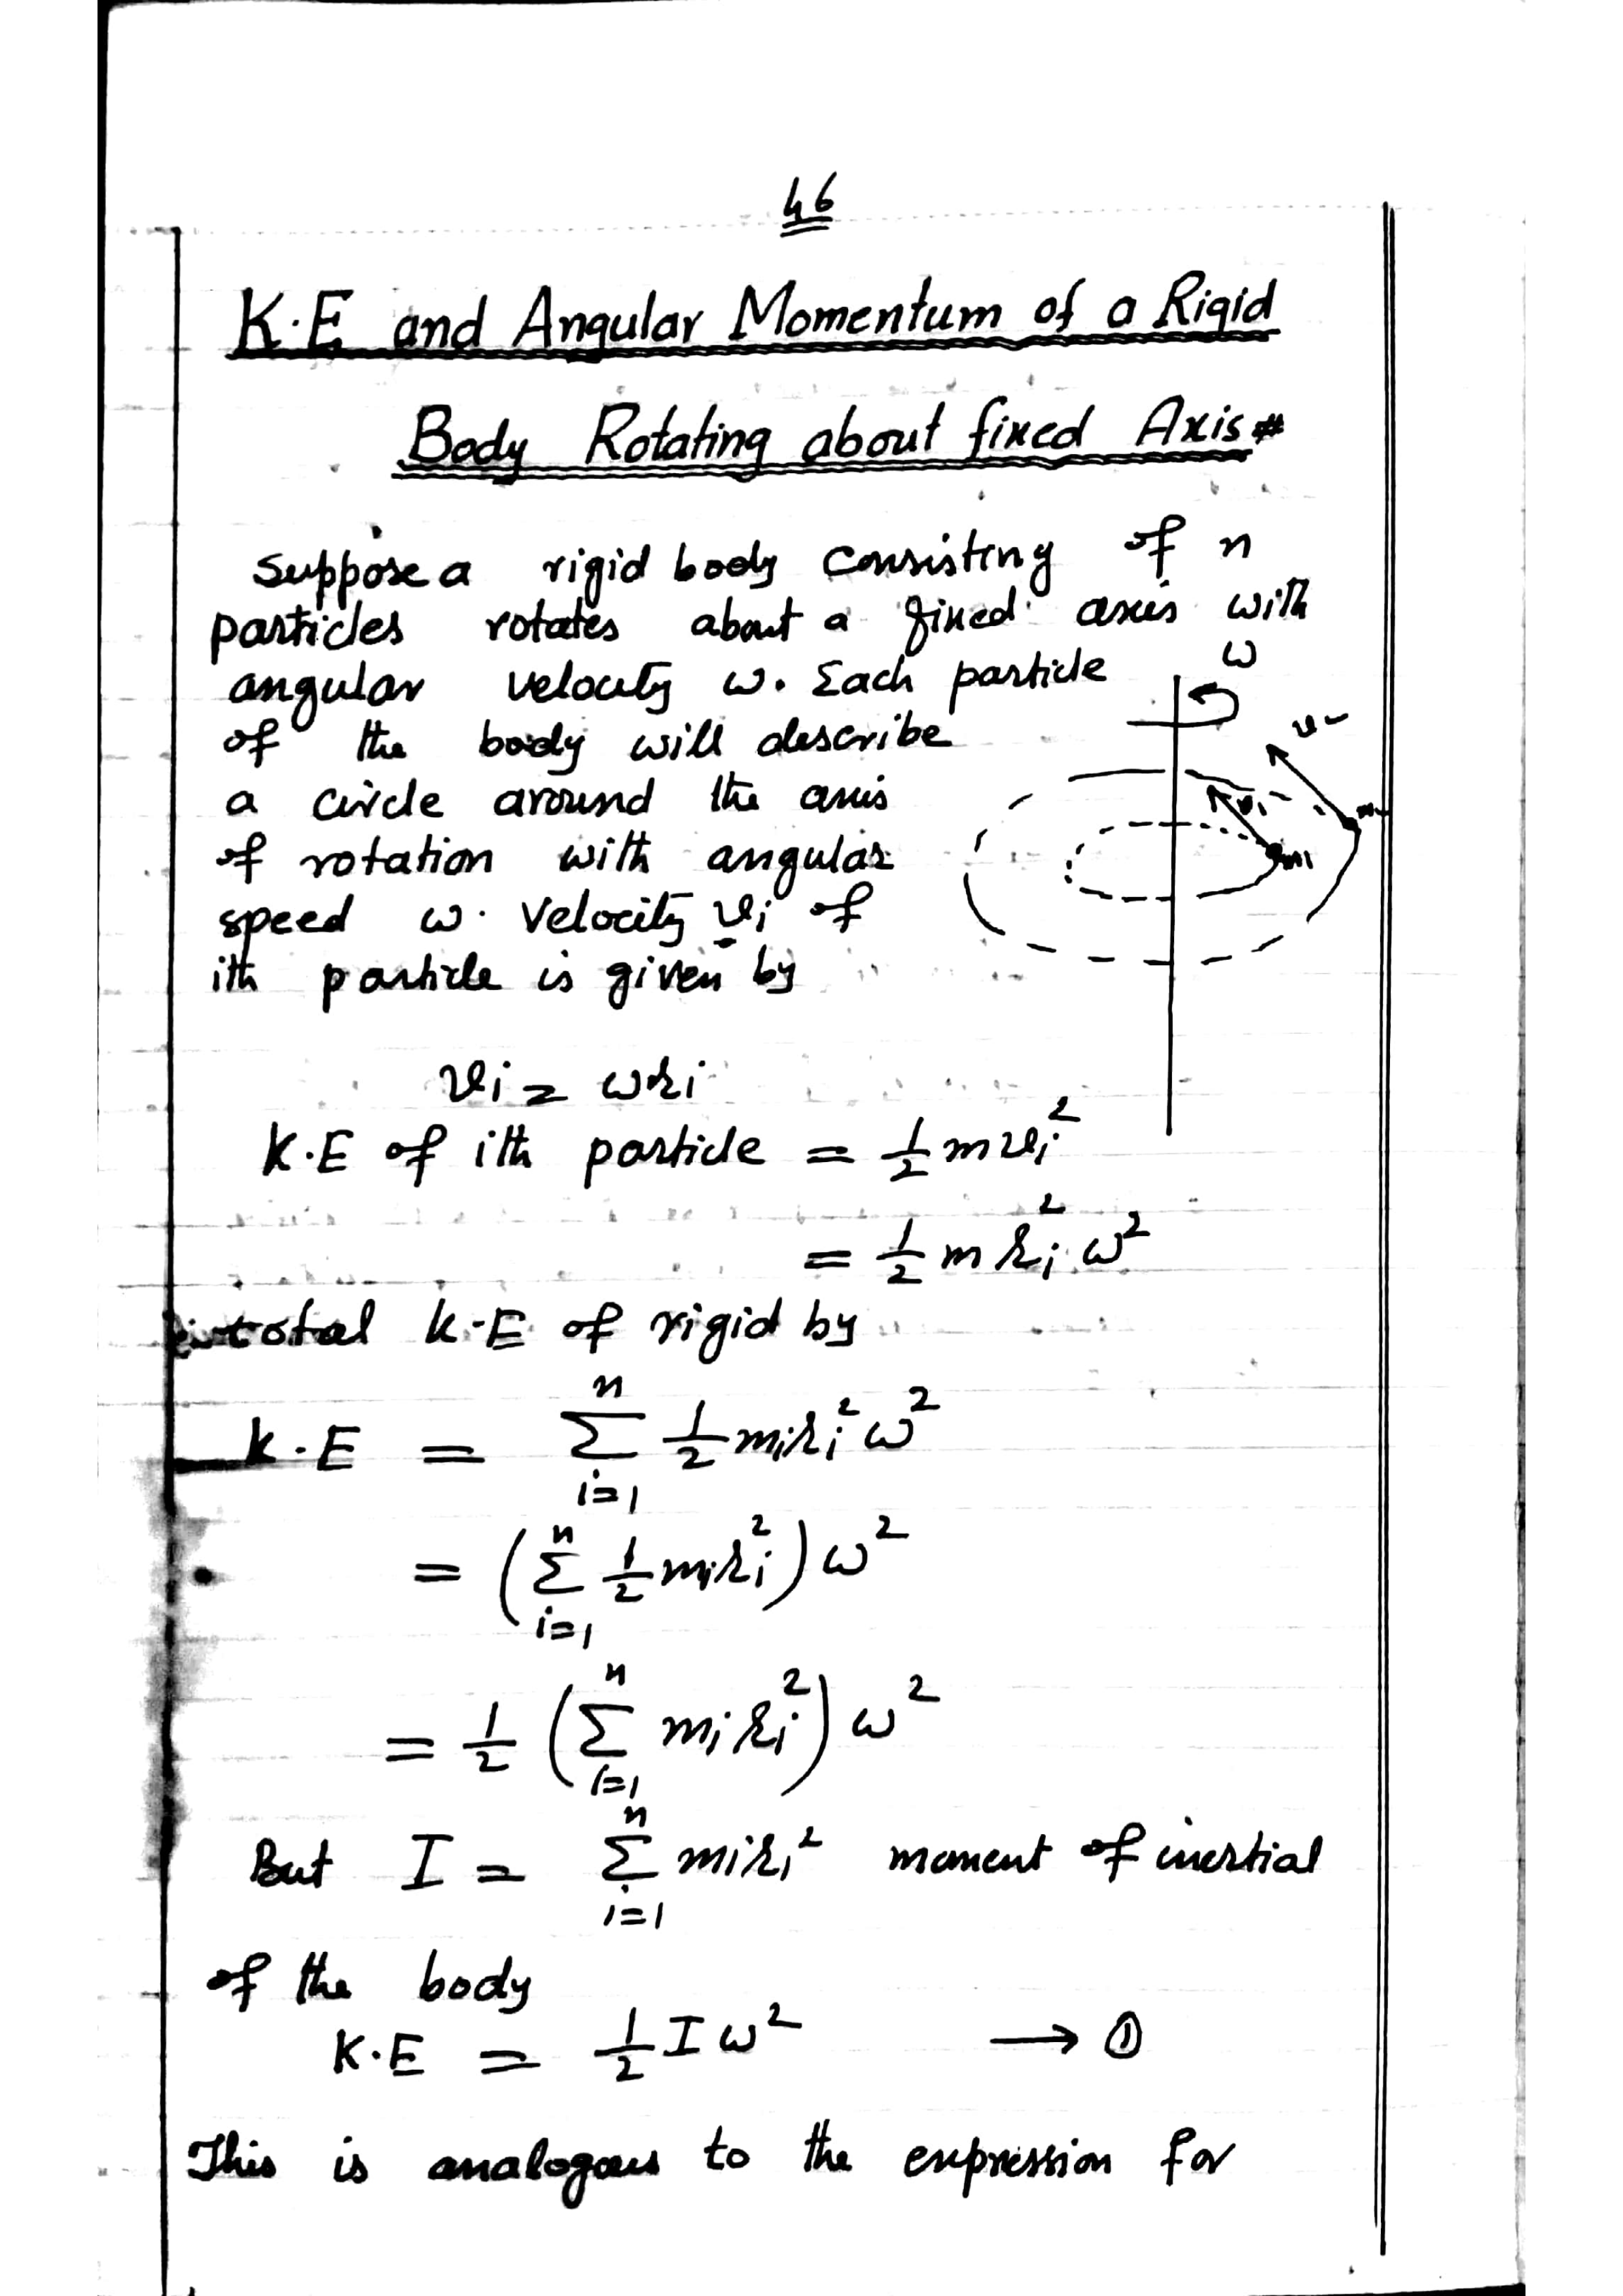 46
K.E and Angular Momentum of a Rigid
Body Rotating about fixed Axis
Suppose a rigid body consisting of n
particles rotates about a fixed axis with
angular velocity ω. Each particle
of the body will describe
a circle around the axis
of rotation with angular
speed ω. Velocity vi of
ith particle is given by
ω
v1
m1
vi = ωri
K.E of ith particle = 1/2 m vi²
= 1/2 m ri² ω²
total K.E of rigid by
K.E = Σ_{i=1}^{n} 1/2 mi ri² ω²
= (Σ_{i=1}^{n} 1/2 mi ri²) ω²
= 1/2 (Σ_{i=1}^{n} mi ri²) ω²
But I = Σ_{i=1}^{n} mi ri² moment of inertial
of the body
K.E = 1/2 I ω² → ①
This is analogous to the expression for